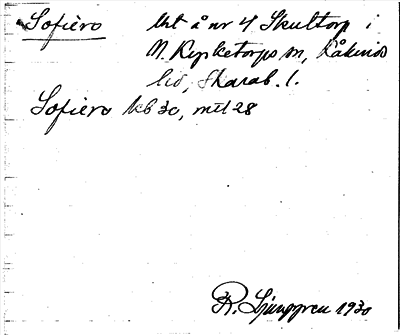 Sofiero lht å nr 4 Skultorp i
N. Kyrketorps sn, Kåkinds
hd, Skarab. l.
Sofiero kb 30, mtl 28
R. Ljunggren 1930